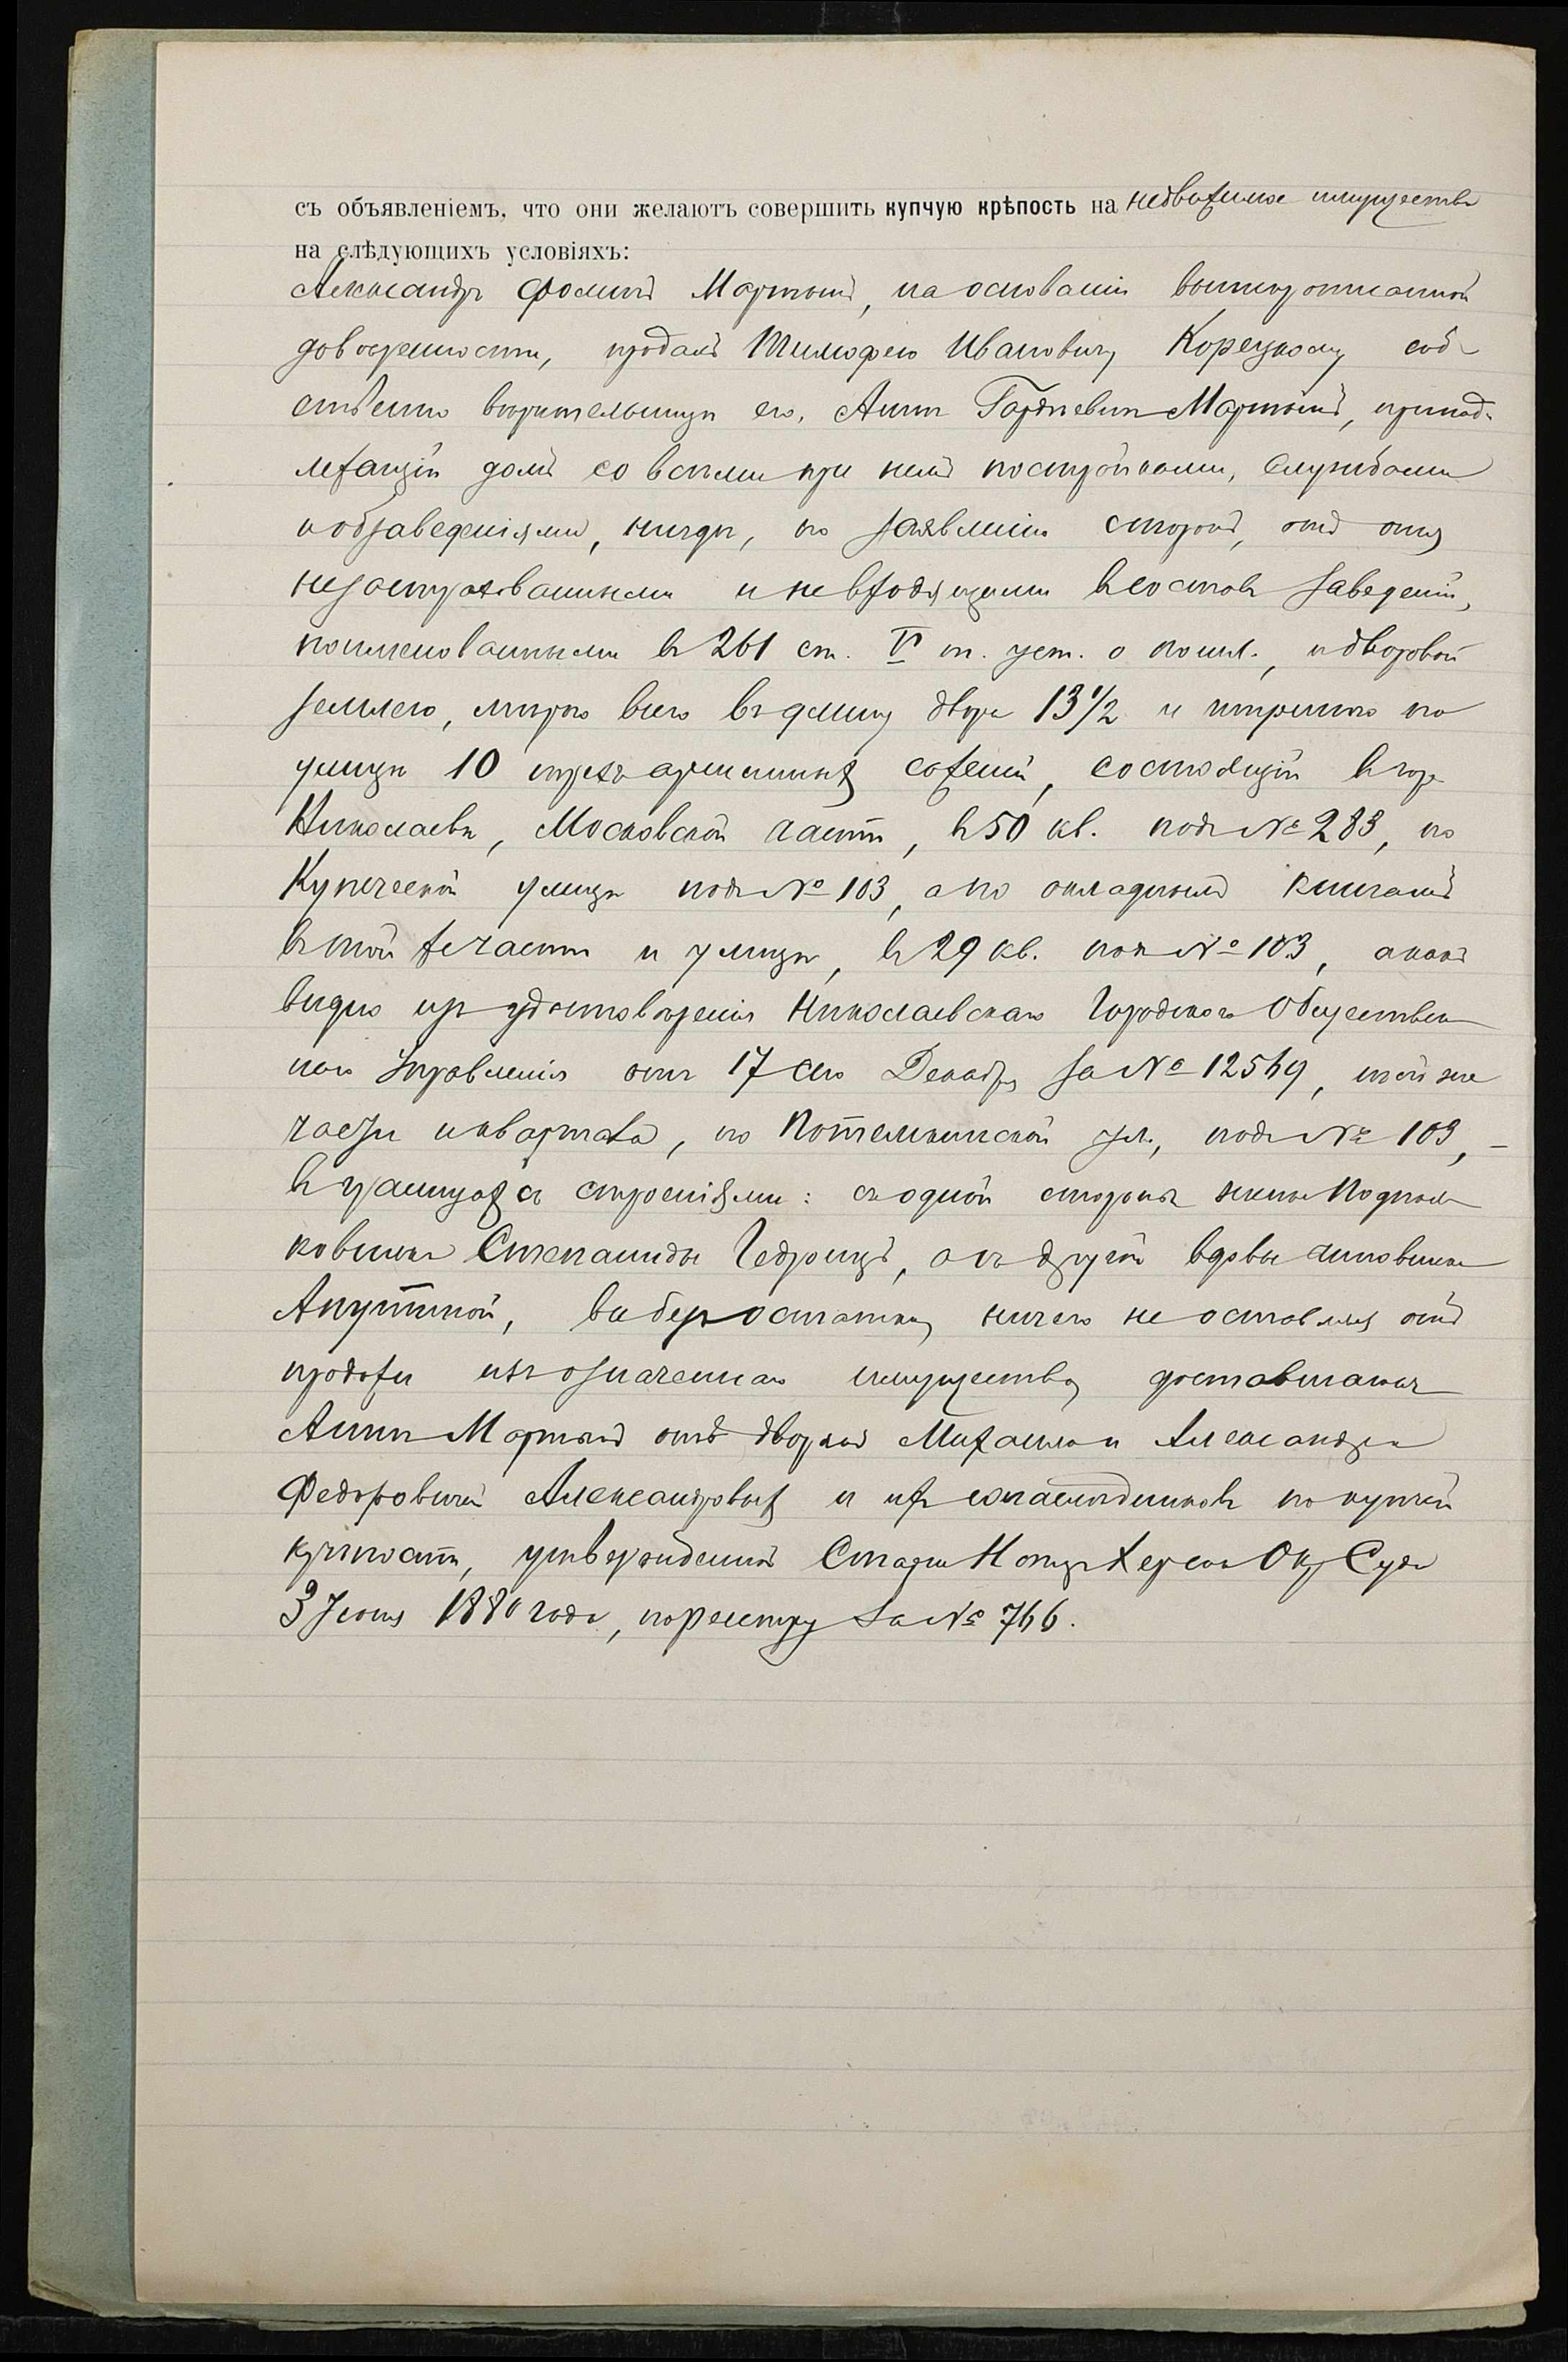 съ объявленіемъ, что они желаютъ совершить купчую крѣпость на недвижимое имущество
на слѣдующихъ условіяхъ:
Александръ Фоминъ Мартынъ, на основаніи вышепрописанной
довѣренности, продалъ Тимофею Ивановичу Корецкому соб-
ственно вѣрительницѣ его, Аннѣ Мартынъ, принад-
лежащій домъ со всѣми при немъ постройками, службами
и обзаведеніями, нигдѣ, по заявленію сторонъ, отъ огня
незастрахованными и не входящими въ составъ заведеній,
поименованныхъ въ 261 ст. V т. уст. о пошл., и дворовой
землею, мѣрою всего въ длину двора 13 1/2 и шириною по
улицѣ 10 трехъ аршинныхъ сажень, состоящій въ гор
Николаевѣ, Московской части, въ 50 кв. подъ № 283, по
Купеческой улицѣ подъ № 103, а по окладнымъ книгамъ
въ той же части и улицѣ, въ 29 кв. подъ № 103, а какъ
видно изъ удостовѣренія Николаевскаго Городского Обществен
наго Управленія отъ 17 сего Декабря за № 12569, той же
части и квартала, по Потемкинской ул., подъ № 103, –
въ границахъ съ строеніями: съ одной стороны жены Подпол
ковника Степаниды Гедройцъ, а съ другой вдовы чиновника
Апуттиной, всѣ безъ остатку, ничего не оставляя отъ
продажи изъ означеннаго имущества, доставшагося
Аннѣ Мартынъ отъ дворянъ Михаила и Александра
Федоровичей Александровыхъ и ихъ сонаслѣдниковъ по купчей
крѣпости, утвержденной Старш Нотар Херсон Окр Суда
3 Іюня 1880 года, по реестру за № 766.